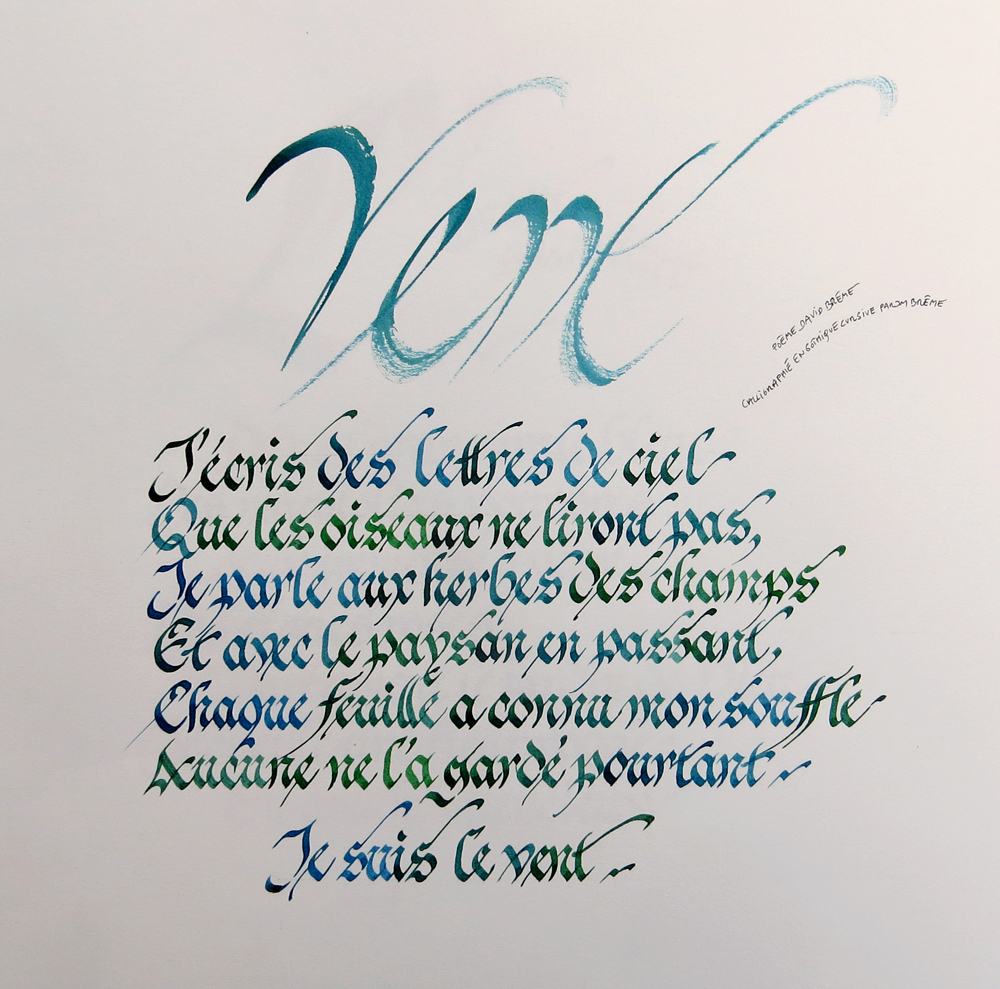 Vent
POÈME DAVID BRÊME
CALLIGRAPHIÉ EN GOTHIQUE CURSIVE PAR JM BRÊME
J'écris des lettres de ciel
Que les oiseaux ne liront pas,
Je parle aux herbes des champs
Et avec le paysan en passant,
Chaque feuille a connu mon souffle
Aucune ne l'a gardé pourtant.
Je suis le vent.